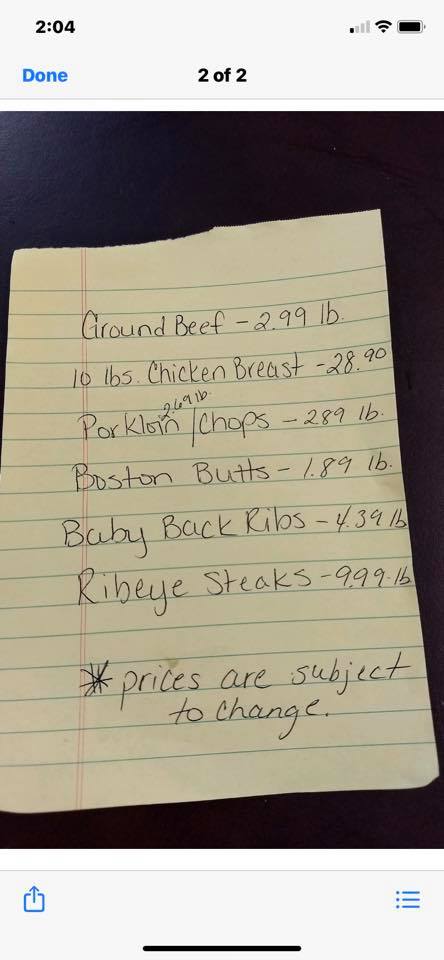 2:04
Done
2 of 2
Ground Beef - 2.99 lb.
10 lbs. Chicken Breast - 28.90
2.69 lb.
Pork loin / Chops - 2.89 lb.
Boston Butts - 1.89 lb.
Baby Back Ribs - 4.39 lb
Ribeye Steaks - 9.99 lb
* prices are subject
to change.